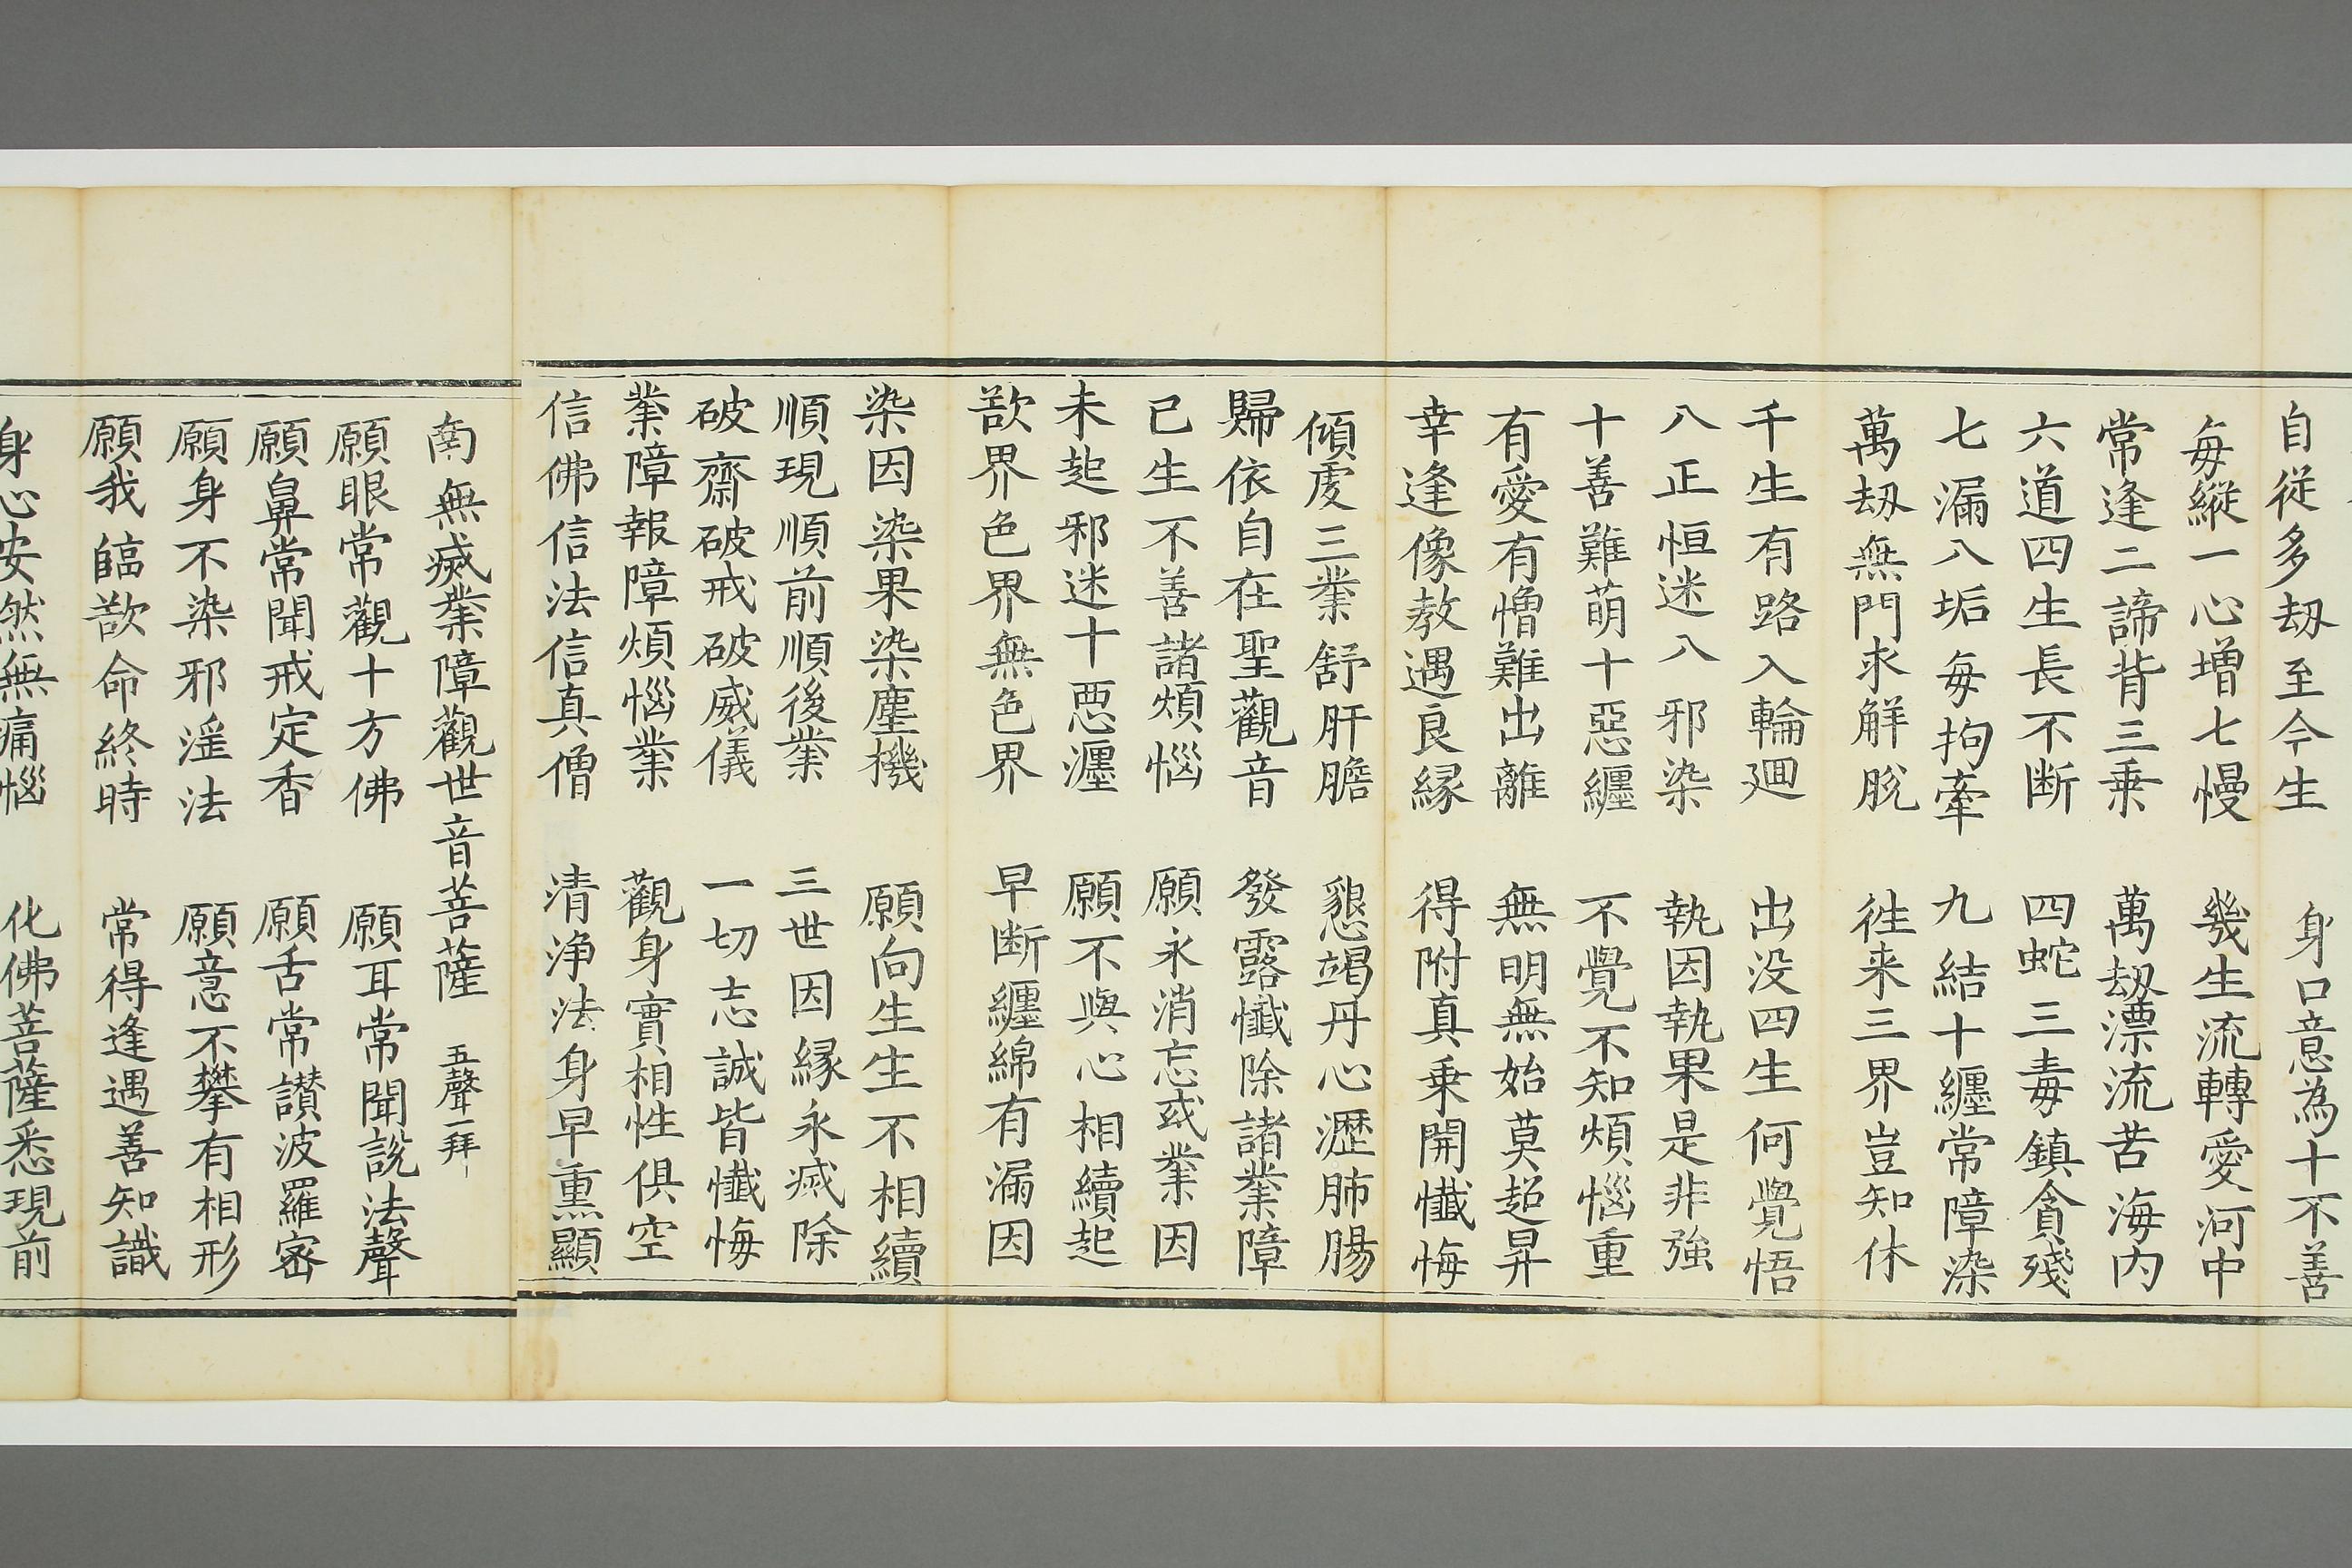 自從多刼至今生　身口意為十不善
每縱一心增七慢　幾生流轉愛河中
常逢二諦背三乗　萬刼漂流苦海内
六道四生長不断　四蛇三毒鎮貪殘
七漏八垢每拘牽　九結十纏常障染
萬刼無門求解脫　徃来三界豈知休
千生有路入輪廻　出没四生何覺悟
八正恒迷八邪染　執因執果是非強
十善難萌十惡纏　不覺不知煩惱重
有愛有憎難出離　無明無始莫超昇
幸逢像教遇良縁　得附真乗開懺悔
傾䖍三業舒肝膽　懇竭丹心瀝肺腸
歸依自在聖觀音　發露懺除諸業障
已生不善諸煩惱　願永消忘或業因
未起邪迷十惡瀍　願不與心相續起
欲界色界無色界　早断纏綿有漏因
染因染果染塵機　願向生生不相續
順現順前順後業　三世因縁永㓕除
破齋破戒破威儀　一切志誠皆懺悔
業障報障煩惱業　觀身實相性俱空
信佛信法信真僧　清淨法身早熏顯
南無㓕業障觀世音菩薩　五聲一拜
願眼常觀十方佛　願耳常聞說法聲
願鼻常聞戒定香　願舌常讃波羅宻
願身不染邪滛法　願意不攀有相形
願我臨欲命終時　常得逢遇善知識
身心安然無痛惱　化佛菩薩悉現前